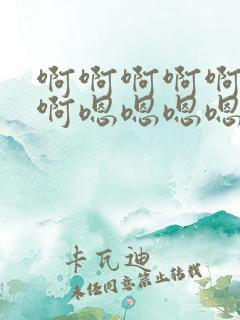 啊啊啊啊啊
啊嗯嗯嗯嗯
卡瓦迪
未经同意禁止转载